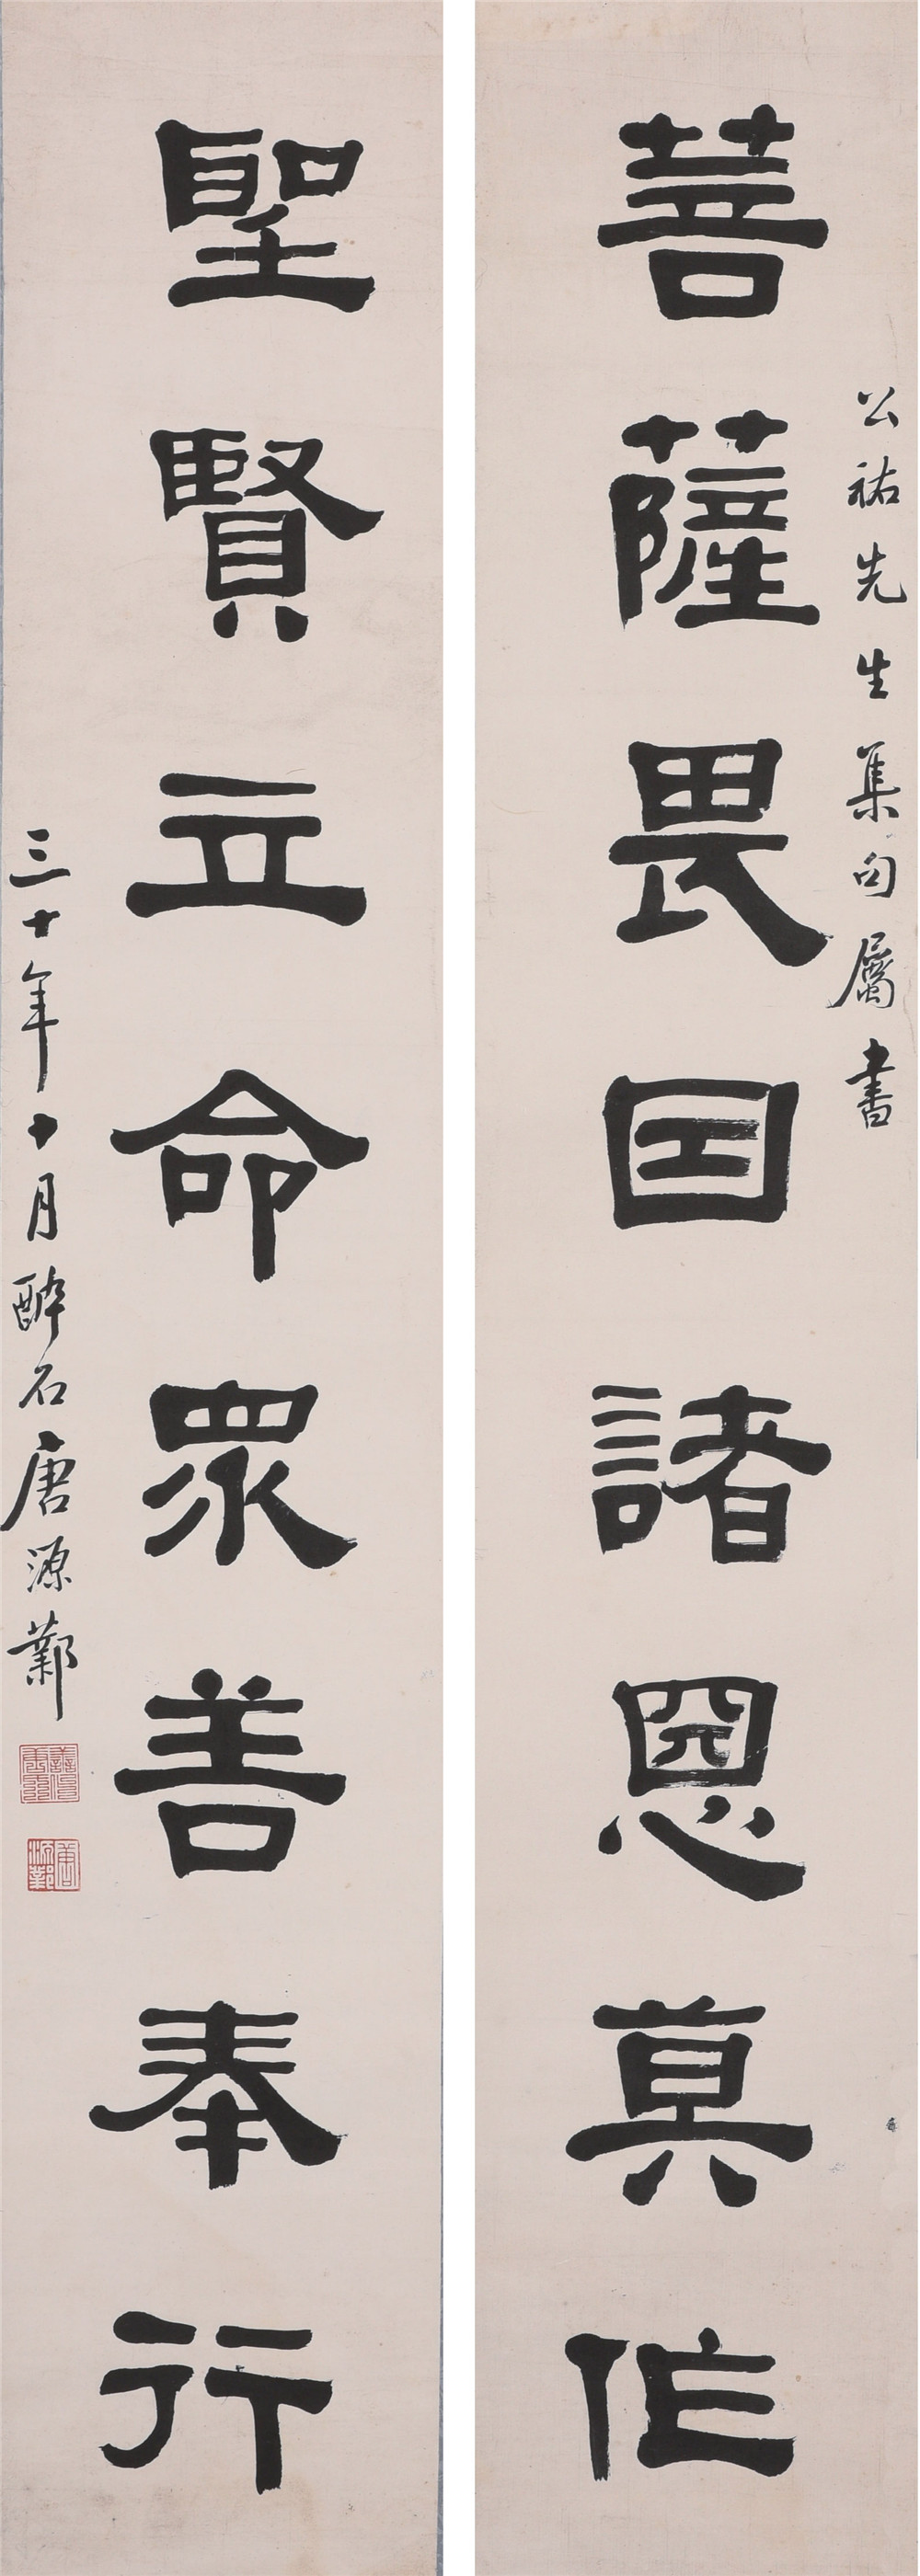 公祐先生集句屬書
菩薩畏因諸惡莫作
聖賢立命眾善奉行
三十年十月醉石唐源鄴
唐源鄴